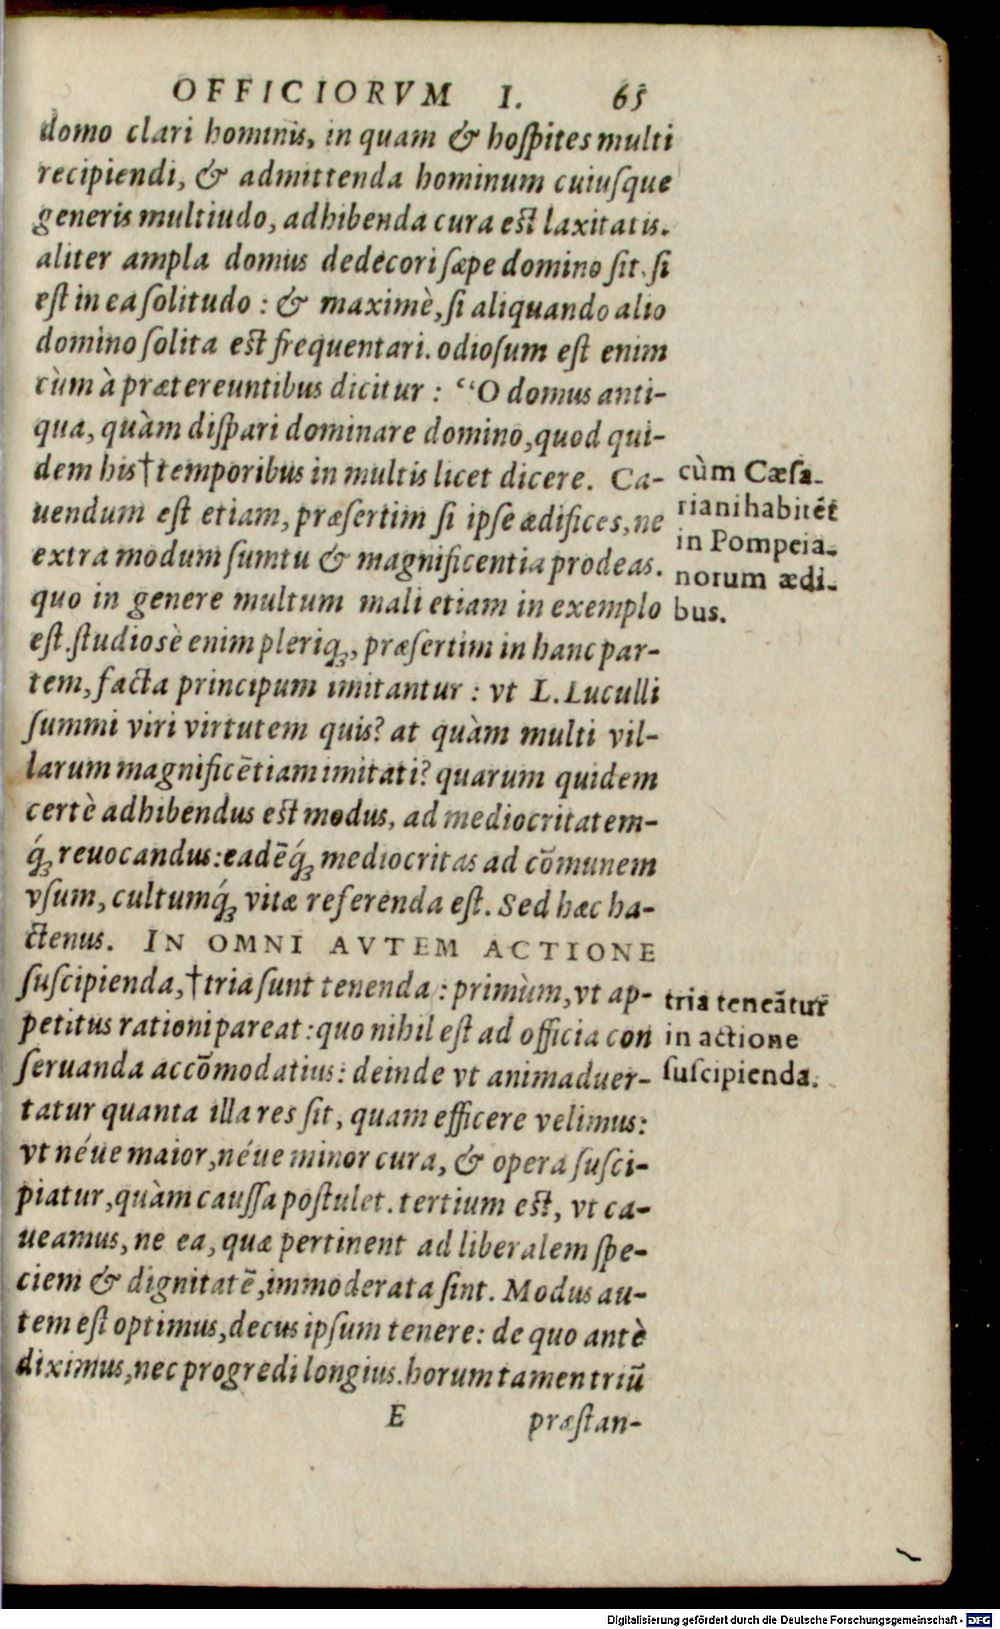 OFFICIORVM I. 65
domo clari hominis, in quam & hoſpites multi
recipiendi, & admittenda hominum cuiuſque
generis multiudo, adhibenda cura eſt laxitatis.
aliter ampla domus dedecori ſæpe domino ſit. ſi
eſt in ea ſolitudo : & maximè, ſi aliquando alio
domino ſolita eſt frequentari. odioſum eſt enim
cùm à prætereuntibus dicitur : “O domus anti-
qua, quàm diſpari dominare domino, quod qui-
dem his † temporibus in multis licet dicere. Ca-
uendum eſt etiam, præſertim ſi ipſe ædifices, ne
extra modum ſumtu & magnificentia prodeas.
quo in genere multum mali etiam in exemplo
eſt. ſtudioſè enim pleriq́;, præſertim in hanc par-
tem, facta principum imitantur : vt L. Luculli
ſummi viri virtutem quis? at quàm multi vil-
larum magnificētiam imitati? quarum quidem
certè adhibendus eſt modus, ad mediocritatem-
q́; reuocandus: eadēq́; mediocritas ad cōmunem
vſum, cultumq́; vitæ referenda eſt. Sed hæc ha-
ctenus. IN OMNI AVTEM ACTIONE
ſuſcipienda, † tria ſunt tenenda : primùm, vt ap-
petitus rationi pareat : quo nihil eſt ad officia con
ſeruanda accōmodatius : deinde vt animaduer-
tatur quanta illa res ſit, quam efficere velimus:
vt néue maior, néue minor cura, & opera ſuſci-
piatur, quàm cauſſa poſtulet. tertium eſt, vt ca-
ueamus, ne ea, quæ pertinent ad liberalem ſpe-
ciem & dignitatē, immoderata ſint. Modus au-
tem eſt optimus, decus ipſum tenere : de quo antè
diximus, nec progredi longius. horum tamen triū
E præſtan-
cùm Cæſa-
riani habitēt
in Pompeia-
norum ædi-
bus.
tria teneātur
in actione
ſuſcipienda.
Digitalisierung gefördert durch die Deutsche Forschungsgemeinschaft - DFG